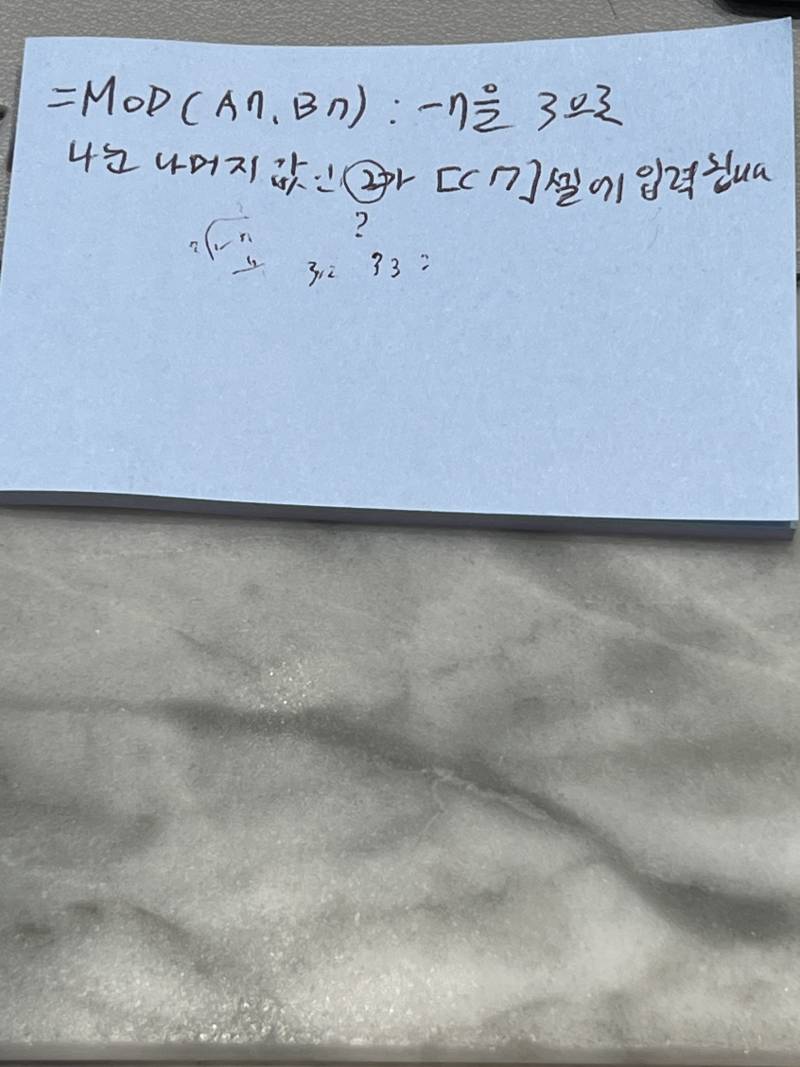 =MOD(A7, B7) : -7을 3으로
나눈 나머지 값인 2가 [C7]셀에 입력됩니다
?